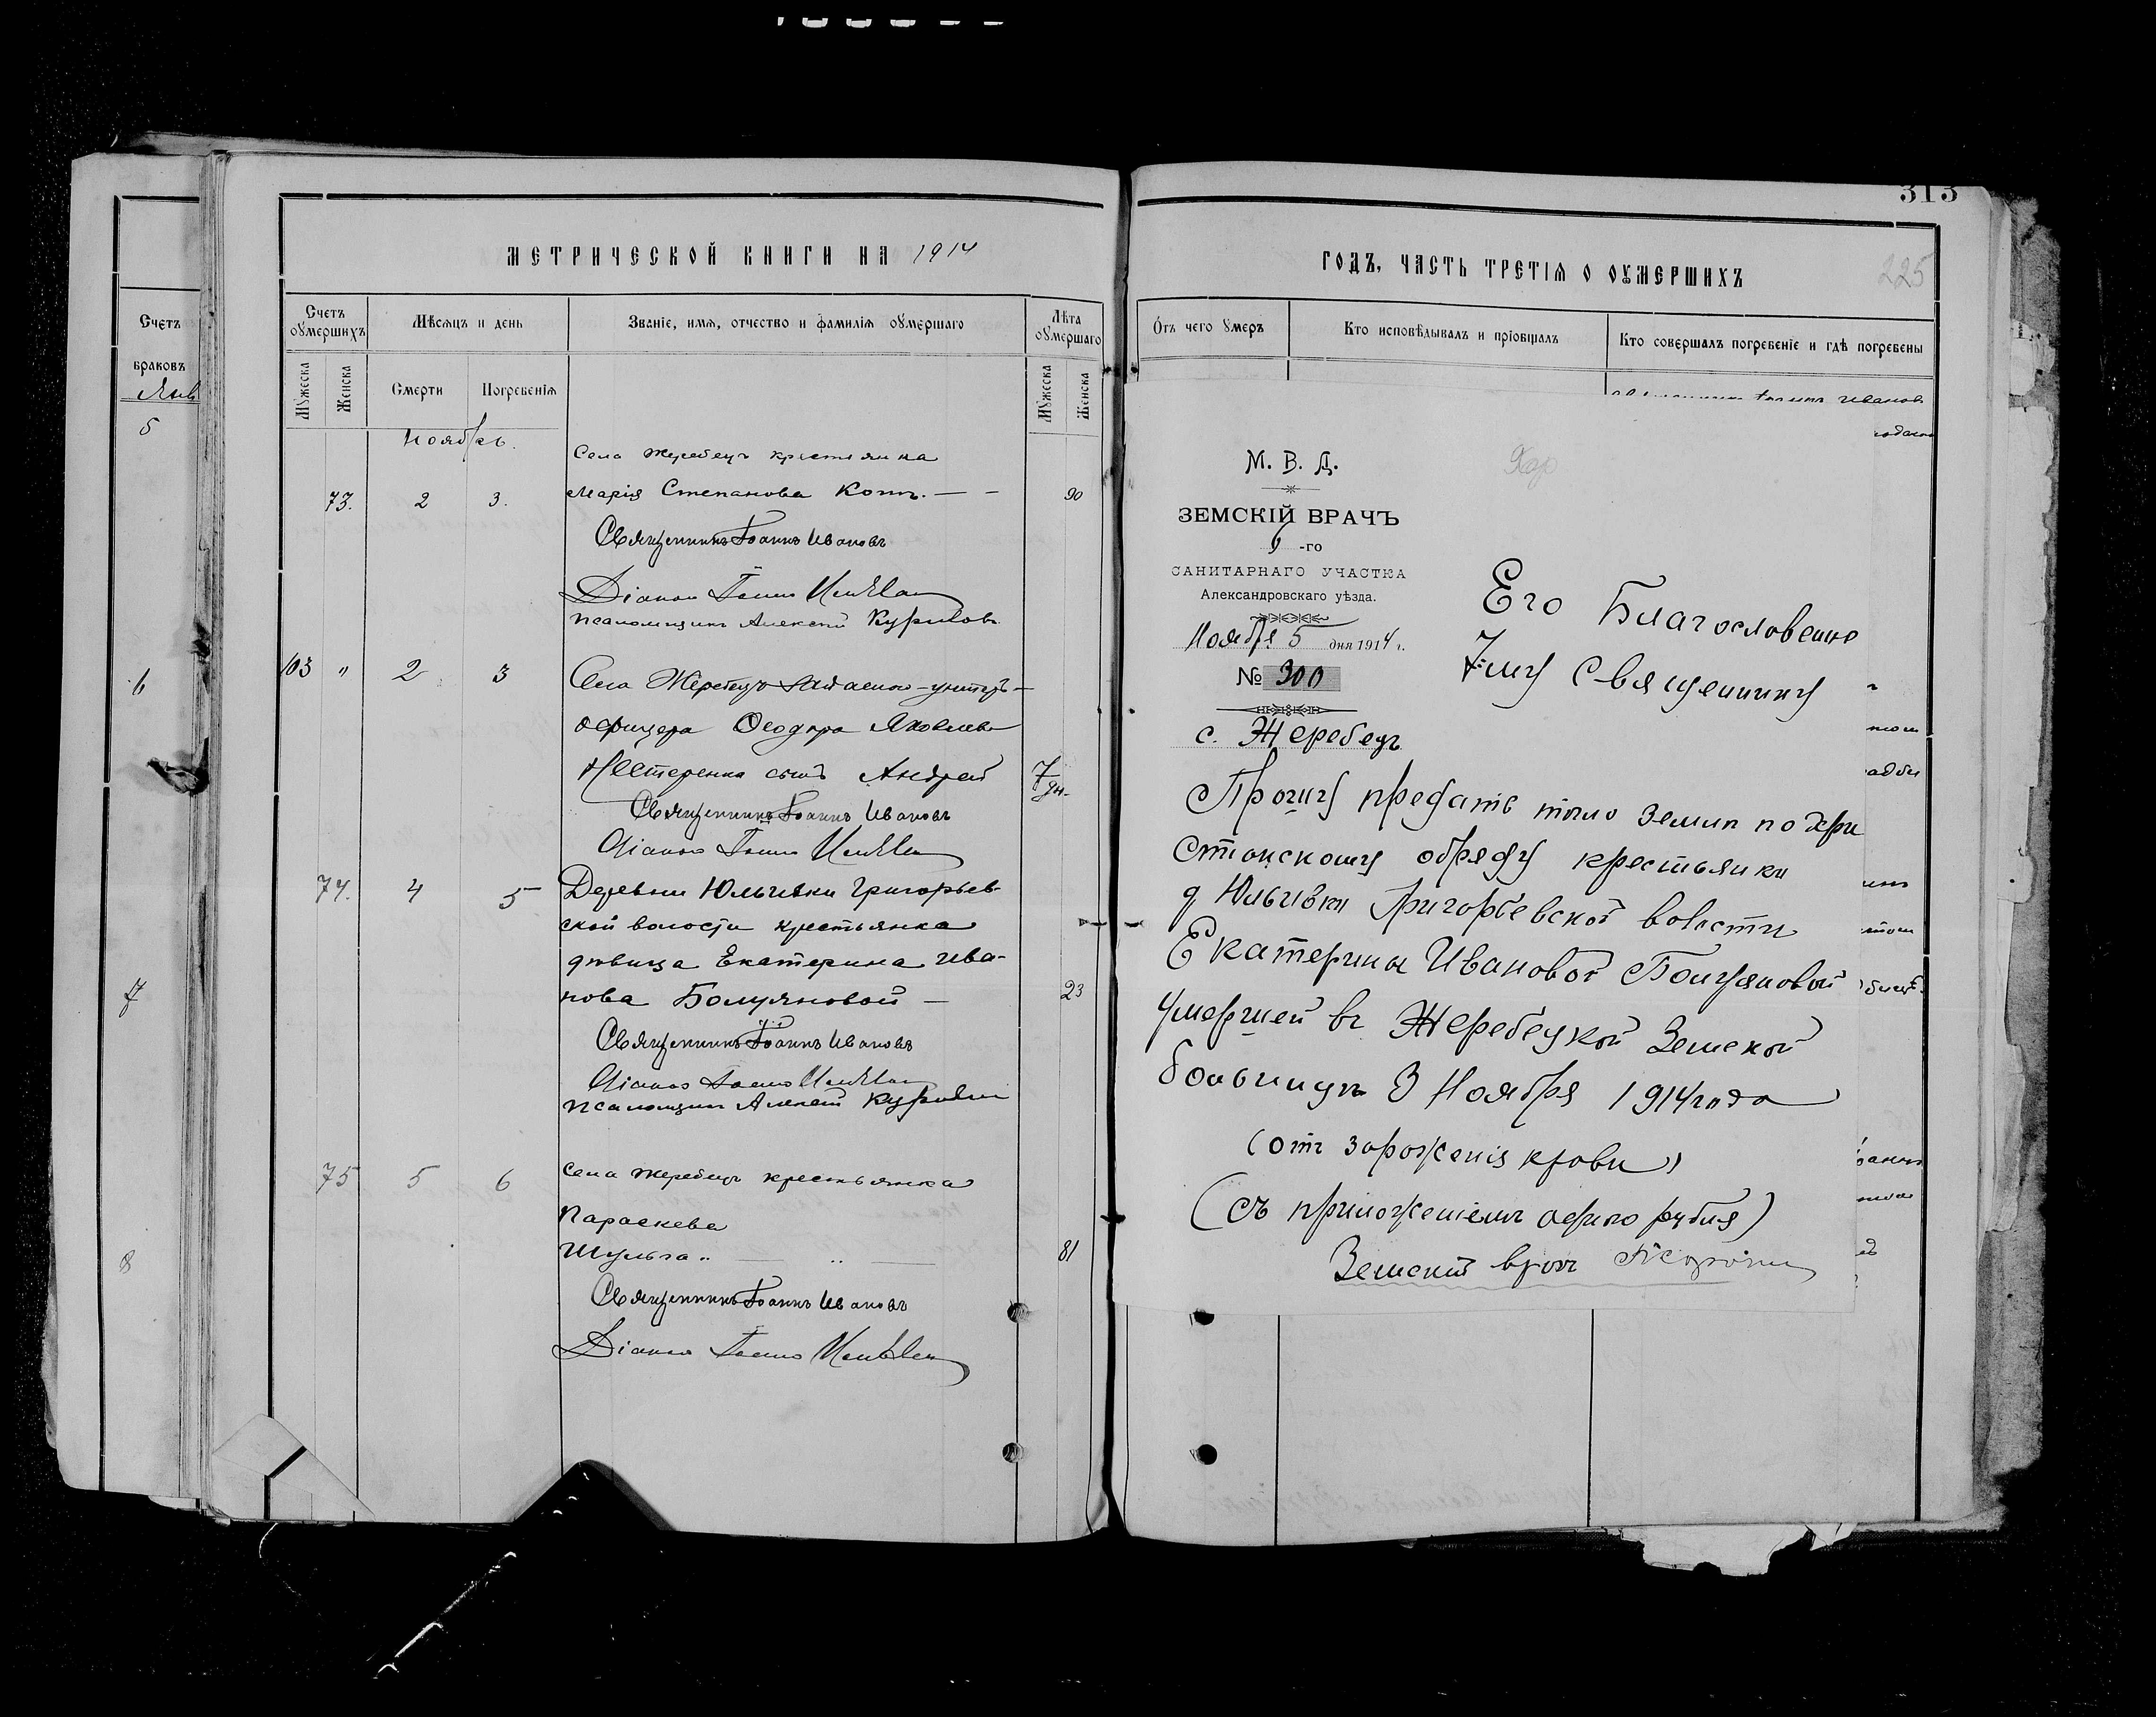 313
225
МЕТРИЧЕСКОЙ КНИГИ НА 1914
ГОДЪ, ЧАСТЬ ТРЕТІѦ О ОУМЕРШИХЪ
Счетъ
браковъ
Янв
5
6
7
8
Счетъ оумершихъ
Мѣсяцъ и день
Званіе, имѧ, отчество и фамиліѧ оумершаго
Лѣта оумершаго
Мужеска
Женска
Смерти
Погребеніѧ
Мужеска
Женска
Ноябрь.
Села Жеребецъ крестьянка
73. 2 3. Марія Степанова Котъ. — — 90
Священникъ Іоаннъ Ивановъ
Діаконъ Іоаннъ
Псаломщикъ Алексѣй Куриловъ
103 " 2 3 Села Жеребецъ запаснаго унтеръ-
офицера Ѳеодора Яковлева
Нестеренка сынъ Андрей 7 дн.
Священникъ Іоаннъ Ивановъ
Діаконъ Іоаннъ
74. 4 5 Деревни Юльевки Григорьев-
ской волости крестьянка
дѣвица Екатерина Ива-
нова Болуяновой — 23
Священникъ Іоаннъ Ивановъ
Діаконъ Іоаннъ
Псаломщикъ Алексѣй Куриловъ
75 5 6 Села Жеребецъ крестьянка
Параскева
Шульга .. — .. — 81
Священникъ Іоаннъ Ивановъ
Діаконъ Іоаннъ
Отъ чего умеръ
Кто исповѣдывалъ и пріобщалъ
Кто совершалъ погребеніе и гдѣ погребены
Ивановъ
М. В. Д.
ЗЕМСКІЙ ВРАЧЪ
6 -го
САНИТАРНАГО УЧАСТКА
Александровскаго уѣзда.
Ноября 5 дня 1914 г.
№ 300
с. Жеребецъ
Его Благословенію
священнику
Прошу предать тѣло земли по хри
стіанскому обряду крестьянки
д Юльевки Григорьевской волости
Екатерины Ивановой Болуяновой
умершей въ Жеребецкой Земской
больницѣ 3 Ноября 1914 года
(отъ зараженія крови)
(съ приложеніемъ одного рубля)
Земскій врачъ